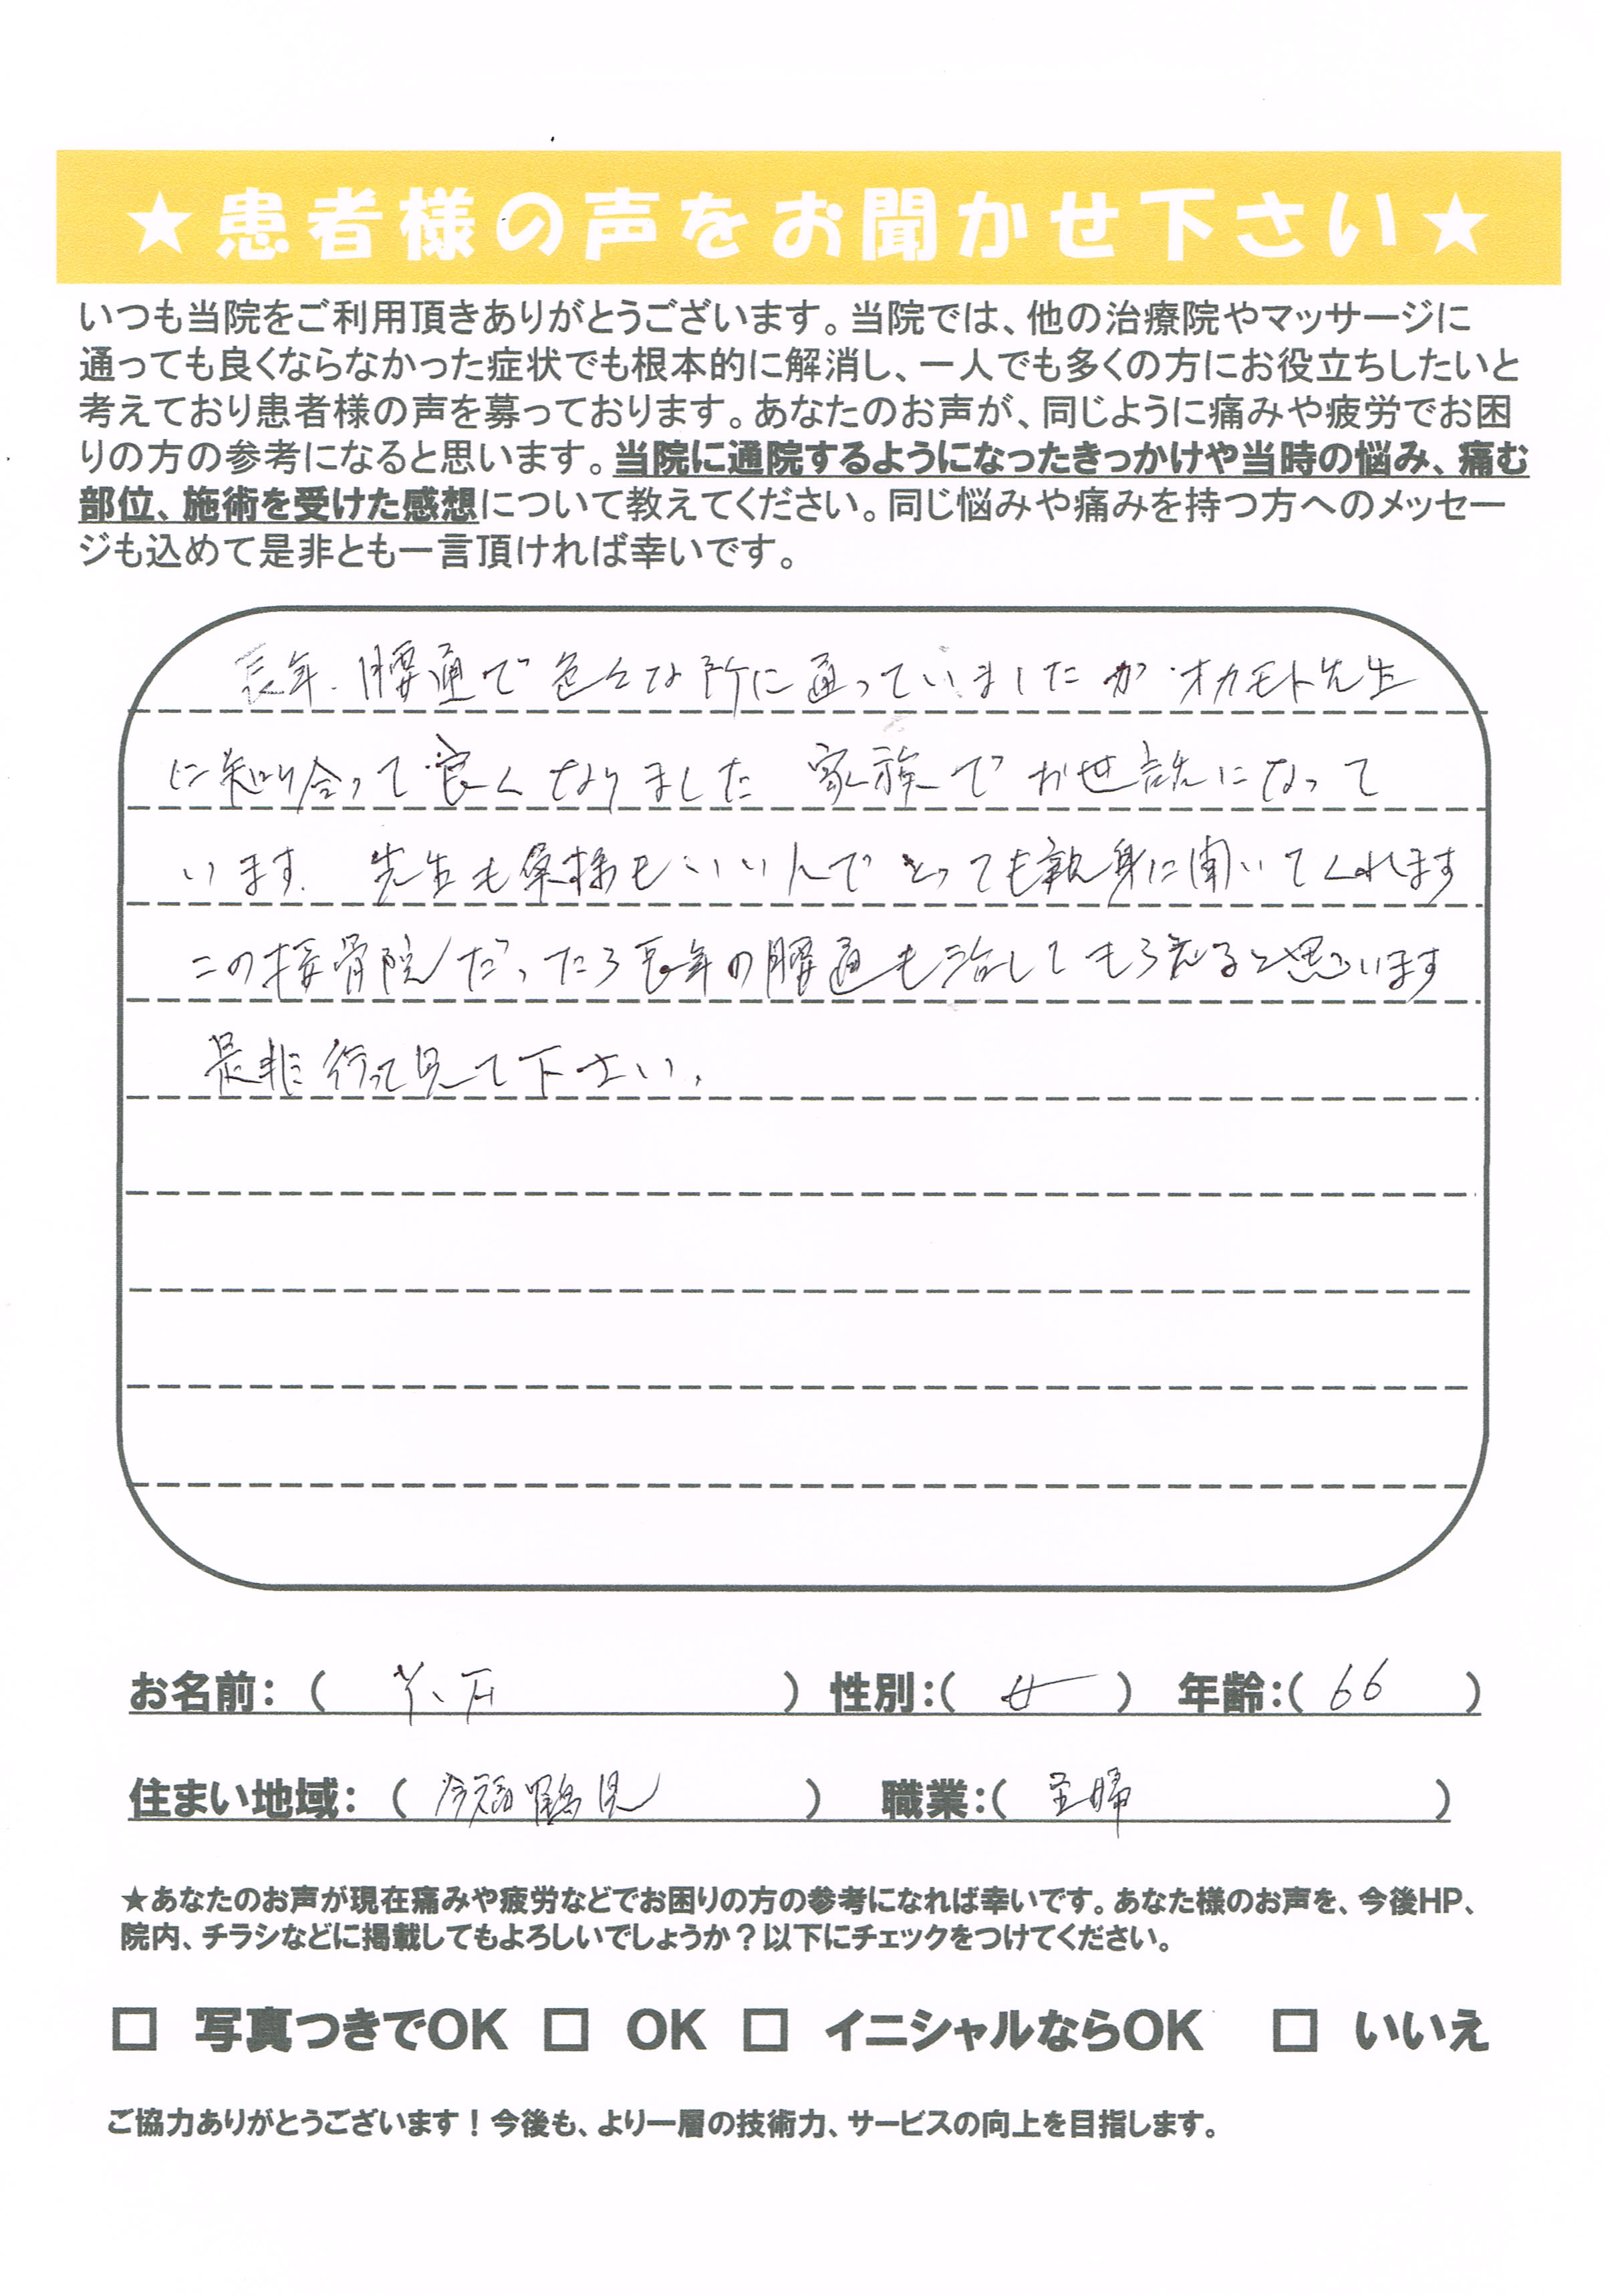 ★患者様の声をお聞かせ下さい★
いつも当院をご利用頂きありがとうございます。当院では、他の治療院やマッサージに
通っても良くならなかった症状でも根本的に解消し、一人でも多くの方にお役立ちしたいと
考えており患者様の声を募っております。あなたのお声が、同じように痛みや疲労でお困
りの方の参考になると思います。当院に通院するようになったきっかけや当時の悩み、痛む
部位、施術を受けた感想について教えてください。同じ悩みや痛みを持つ方へのメッセー
ジも込めて是非とも一言頂ければ幸いです。
長年、腰通で色々な所に通っていましたが オカモト先生
に知り合って良くなりました 家族でお世話になって
います. 先生も奥様もいい人で とっても親身に聞いてくれます
この接骨院だったら長年の腰通も治してもらえると思います
是非行って見て下さい.
お名前：（ ） 性別：（ 女 ） 年齢：（ 66 ）
住まい地域：（ 今福鶴見 ） 職業：（ 主婦 ）
★あなたのお声が現在痛みや疲労などでお困りの方の参考になれば幸いです。あなた様のお声を、今後HP、
院内、チラシなどに掲載してもよろしいでしょうか？以下にチェックをつけてください。
□ 写真つきでOK □ OK □ イニシャルならOK □ いいえ
ご協力ありがとうございます！今後も、より一層の技術力、サービスの向上を目指します。